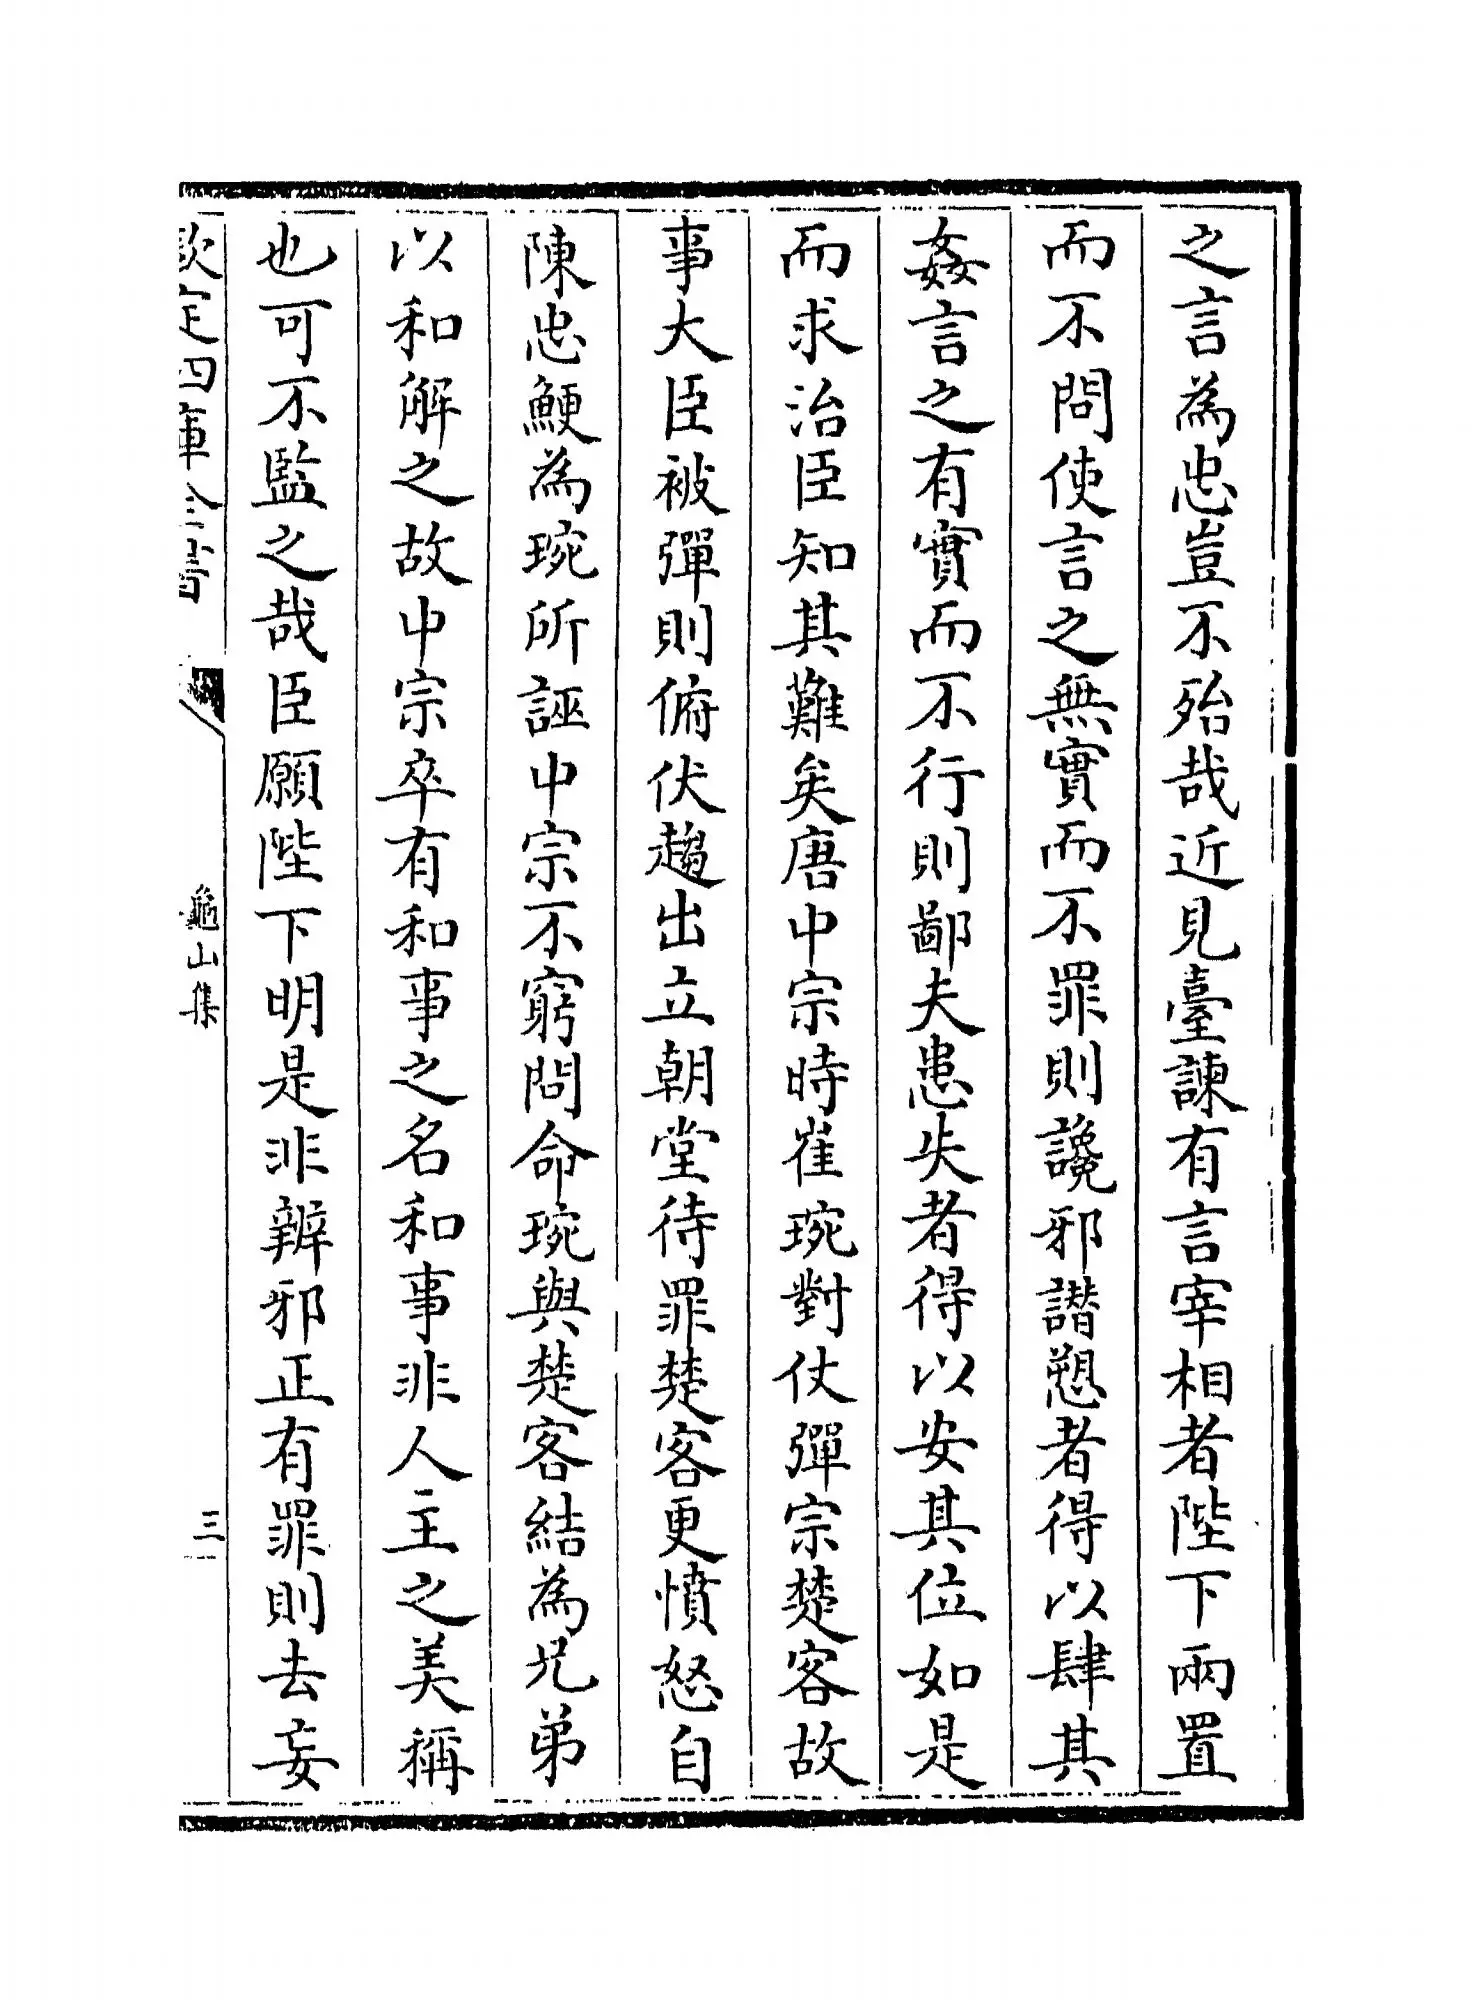 之言為忠豈不殆哉近見臺諫有言宰相者陛下兩置
而不問使言之無實而不罪則讒邪譖愬者得以肆其
姦言之有實而不行則鄙夫患失者得以安其位如是
而求治臣知其難矣唐中宗時崔琬對仗彈宗楚客故
事大臣被彈則俯伏趨出立朝堂待罪楚客更憤怒自
陳忠鯁為琬所誣中宗不窮問命琬與楚客結為兄弟
以和解之故中宗卒有和事之名和事非人主之美稱
也可不監之哉臣願陛下明是非辨邪正有罪則去妄
欽定四庫全書
龜山集
三